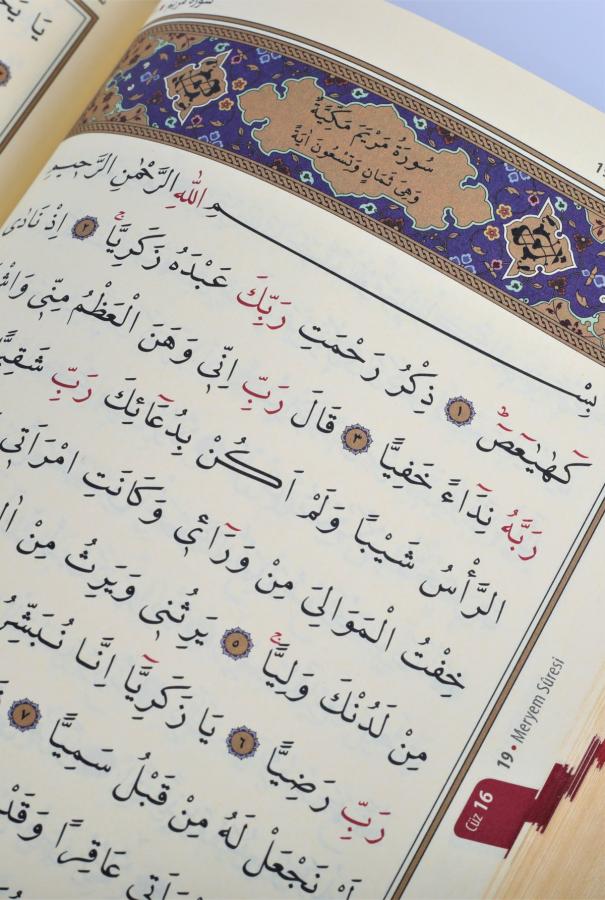 سُورَةُ مَرْيَمَ مَكِّيَّةٌ
وَهِىَ ثَمَانٍ وَتِسْعُونَ اٰيَةً
بِسْــــمِ اللّٰهِ الرَّحْمٰنِ الرَّحٖيمِ
كٓهٰيٰعٓصٓ ۜ ﴿١﴾ ذِكْرُ رَحْمَتِ رَبِّكَ عَبْدَهُ زَكَرِيَّاۚ ﴿٢﴾ اِذْ نَادٰى
رَبَّهُ نِدَٓاءً خَفِيًّا ﴿٣﴾ قَالَ رَبِّ اِنّٖى وَهَنَ الْعَظْمُ مِنّٖى
الرَّأْسُ شَيْبًا وَلَمْ اَكُنْ بِدُعَٓائِكَ رَبِّ شَقِيًّا
خِفْتُ الْمَوَالِىَ مِنْ وَرَٓاءٖى وَكَانَتِ امْرَاَتٖى
مِنْ لَدُنْكَ وَلِيًّاۙ ﴿٥﴾ يَرِثُنٖى وَيَرِثُ مِنْ
رَبِّ رَضِيًّا ﴿٦﴾ يَا زَكَرِيَّٓا اِنَّا نُبَشِّرُ
لَمْ نَجْعَلْ لَهُ مِنْ قَبْلُ سَمِيًّا ﴿٧﴾
عَاقِرًا وَقَدْ
19 • Meryem Sûresi
Cüz 16